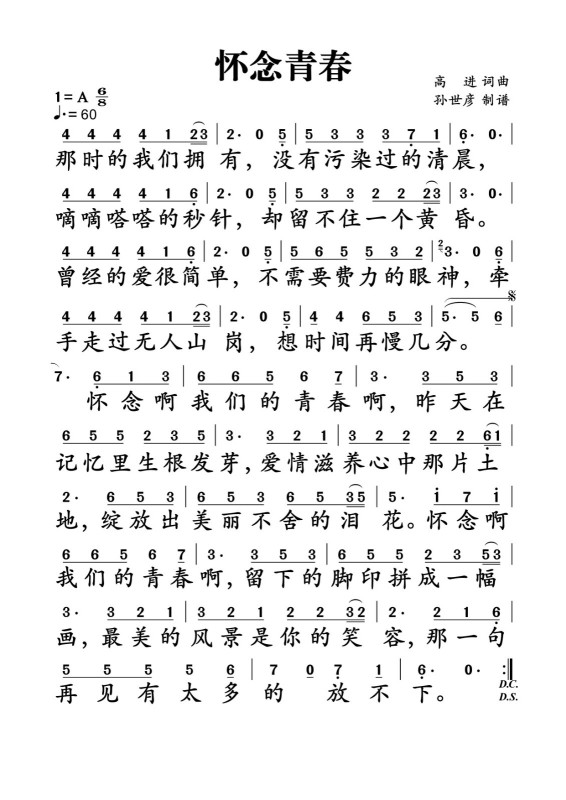 怀念青春
高 进 词曲
1=A 6/8
孙世彦 制谱
♩.=60
4 4 4 4 1 23 | 2· 0 5 | 5 3 3 3 7 1 | 6· 0· |
那时的我们拥 有，没有污染过的清晨，
4 4 4 4 1 6 | 2· 0 5 | 3 3 3 2 2 23 | 3· 0· |
嘀嘀嗒嗒的秒针，却留不住一个黄 昏。
4 4 4 4 1 6 | 2· 0 5 | 5 6 5 5 3 2 | 2 3· 0 6 |
曾经的爱很简单，不需要费力的眼神，牵
4 4 4 4 1 23 | 2· 0 5 | 4 4 6 5 3 | 5· 5 6 |
手走过无人山 岗，想时间再慢几分。
7· 6 1 3 | 6 6 5 6 7 | 3· 3 5 3 |
怀念啊我们的青春啊，昨天在
6 5 5 2 2 2 | 3· 3 2 1 | 3 2 2 2 2 61 |
记忆里生根发芽，爱情滋养心中那片土
2· 6 5 3 | 6 5 3 6 5 35 | 5· 1 7 1 |
地，绽放出美丽不舍的泪 花。怀念啊
6 6 5 6 7 | 3· 3 5 3 | 6 5 5 5 5 53 |
我们的青春啊，留下的脚印拼成一幅
3· 3 2 1 | 2 2 1 2 3 32 | 2 1 6 |
画，最美的风景是你的笑 容，那一句
5 5 5 5 6 | 7 0 7 1 | 6· 0· :‖
再见有太多的 放不下。
D.C.
D.S.